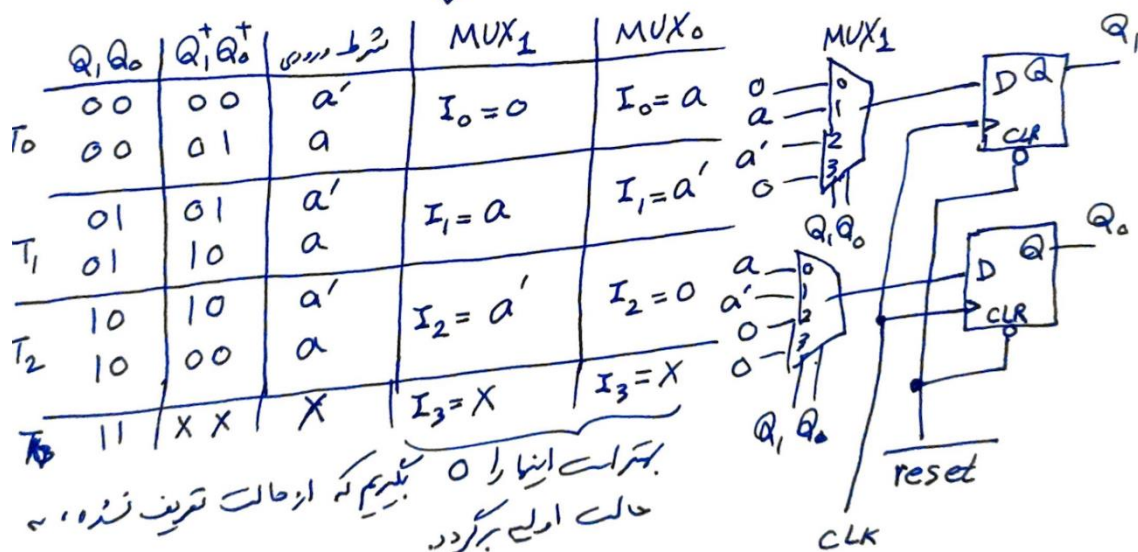 Q₁Q₀ Q₁⁺Q₀⁺ شرط ورودی MUX₁ MUX₀
T₀ 00 00 a′ I₀=0 I₀=a
00 01 a
T₁ 01 01 a′ I₁=a I₁=a′
01 10 a
T₂ 10 10 a′ I₂=a′ I₂=0
10 00 a
11 X X X I₃=X I₃=X
بهتر است اینها را 0 بگیریم که از حالت تعریف نشده، به
حالت اولیه برگردد.
MUX₁
0 0
a 1
a′ 2
0 3
Q₁Q₀
D Q Q₁
CLR
a 0
a′ 1
0 2
0 3
Q₁ Q₀
D Q Q₀
CLR
reset
CLK